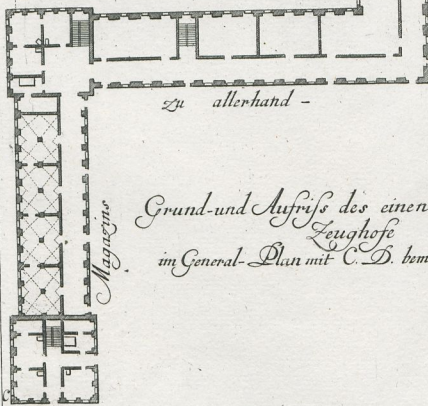 zu allerhand -
Magazins
Grund-und Aufriſs des einen
Zeughofe
im General-Plan mit C. D. bem